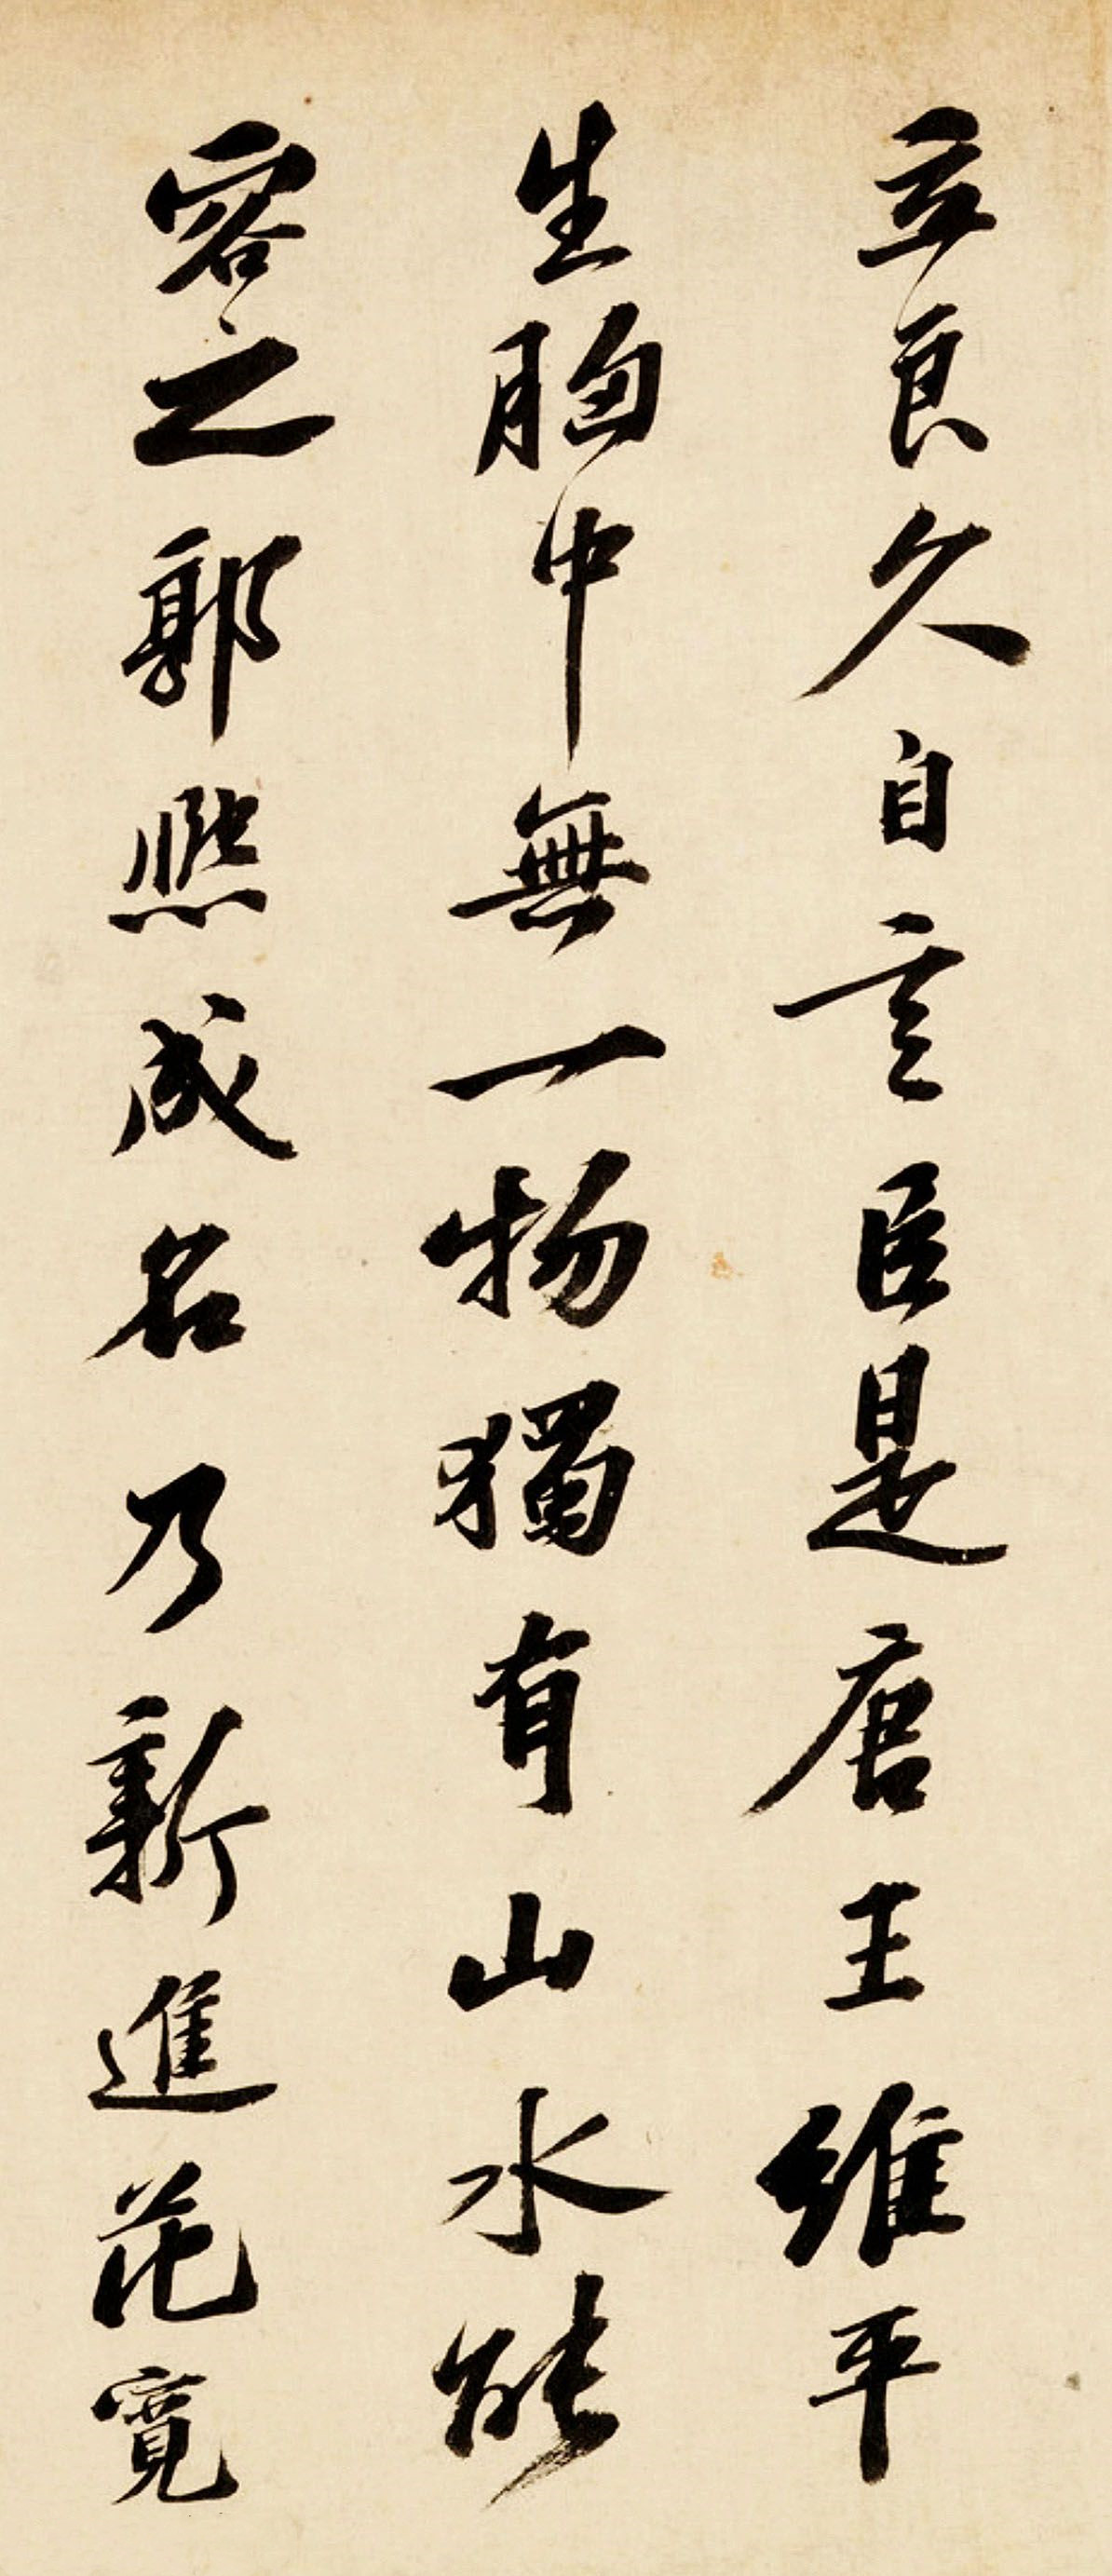 立良久自言臣是唐王維平
生胸中無一物獨有山水能
容之郭熙成名乃新進范寬